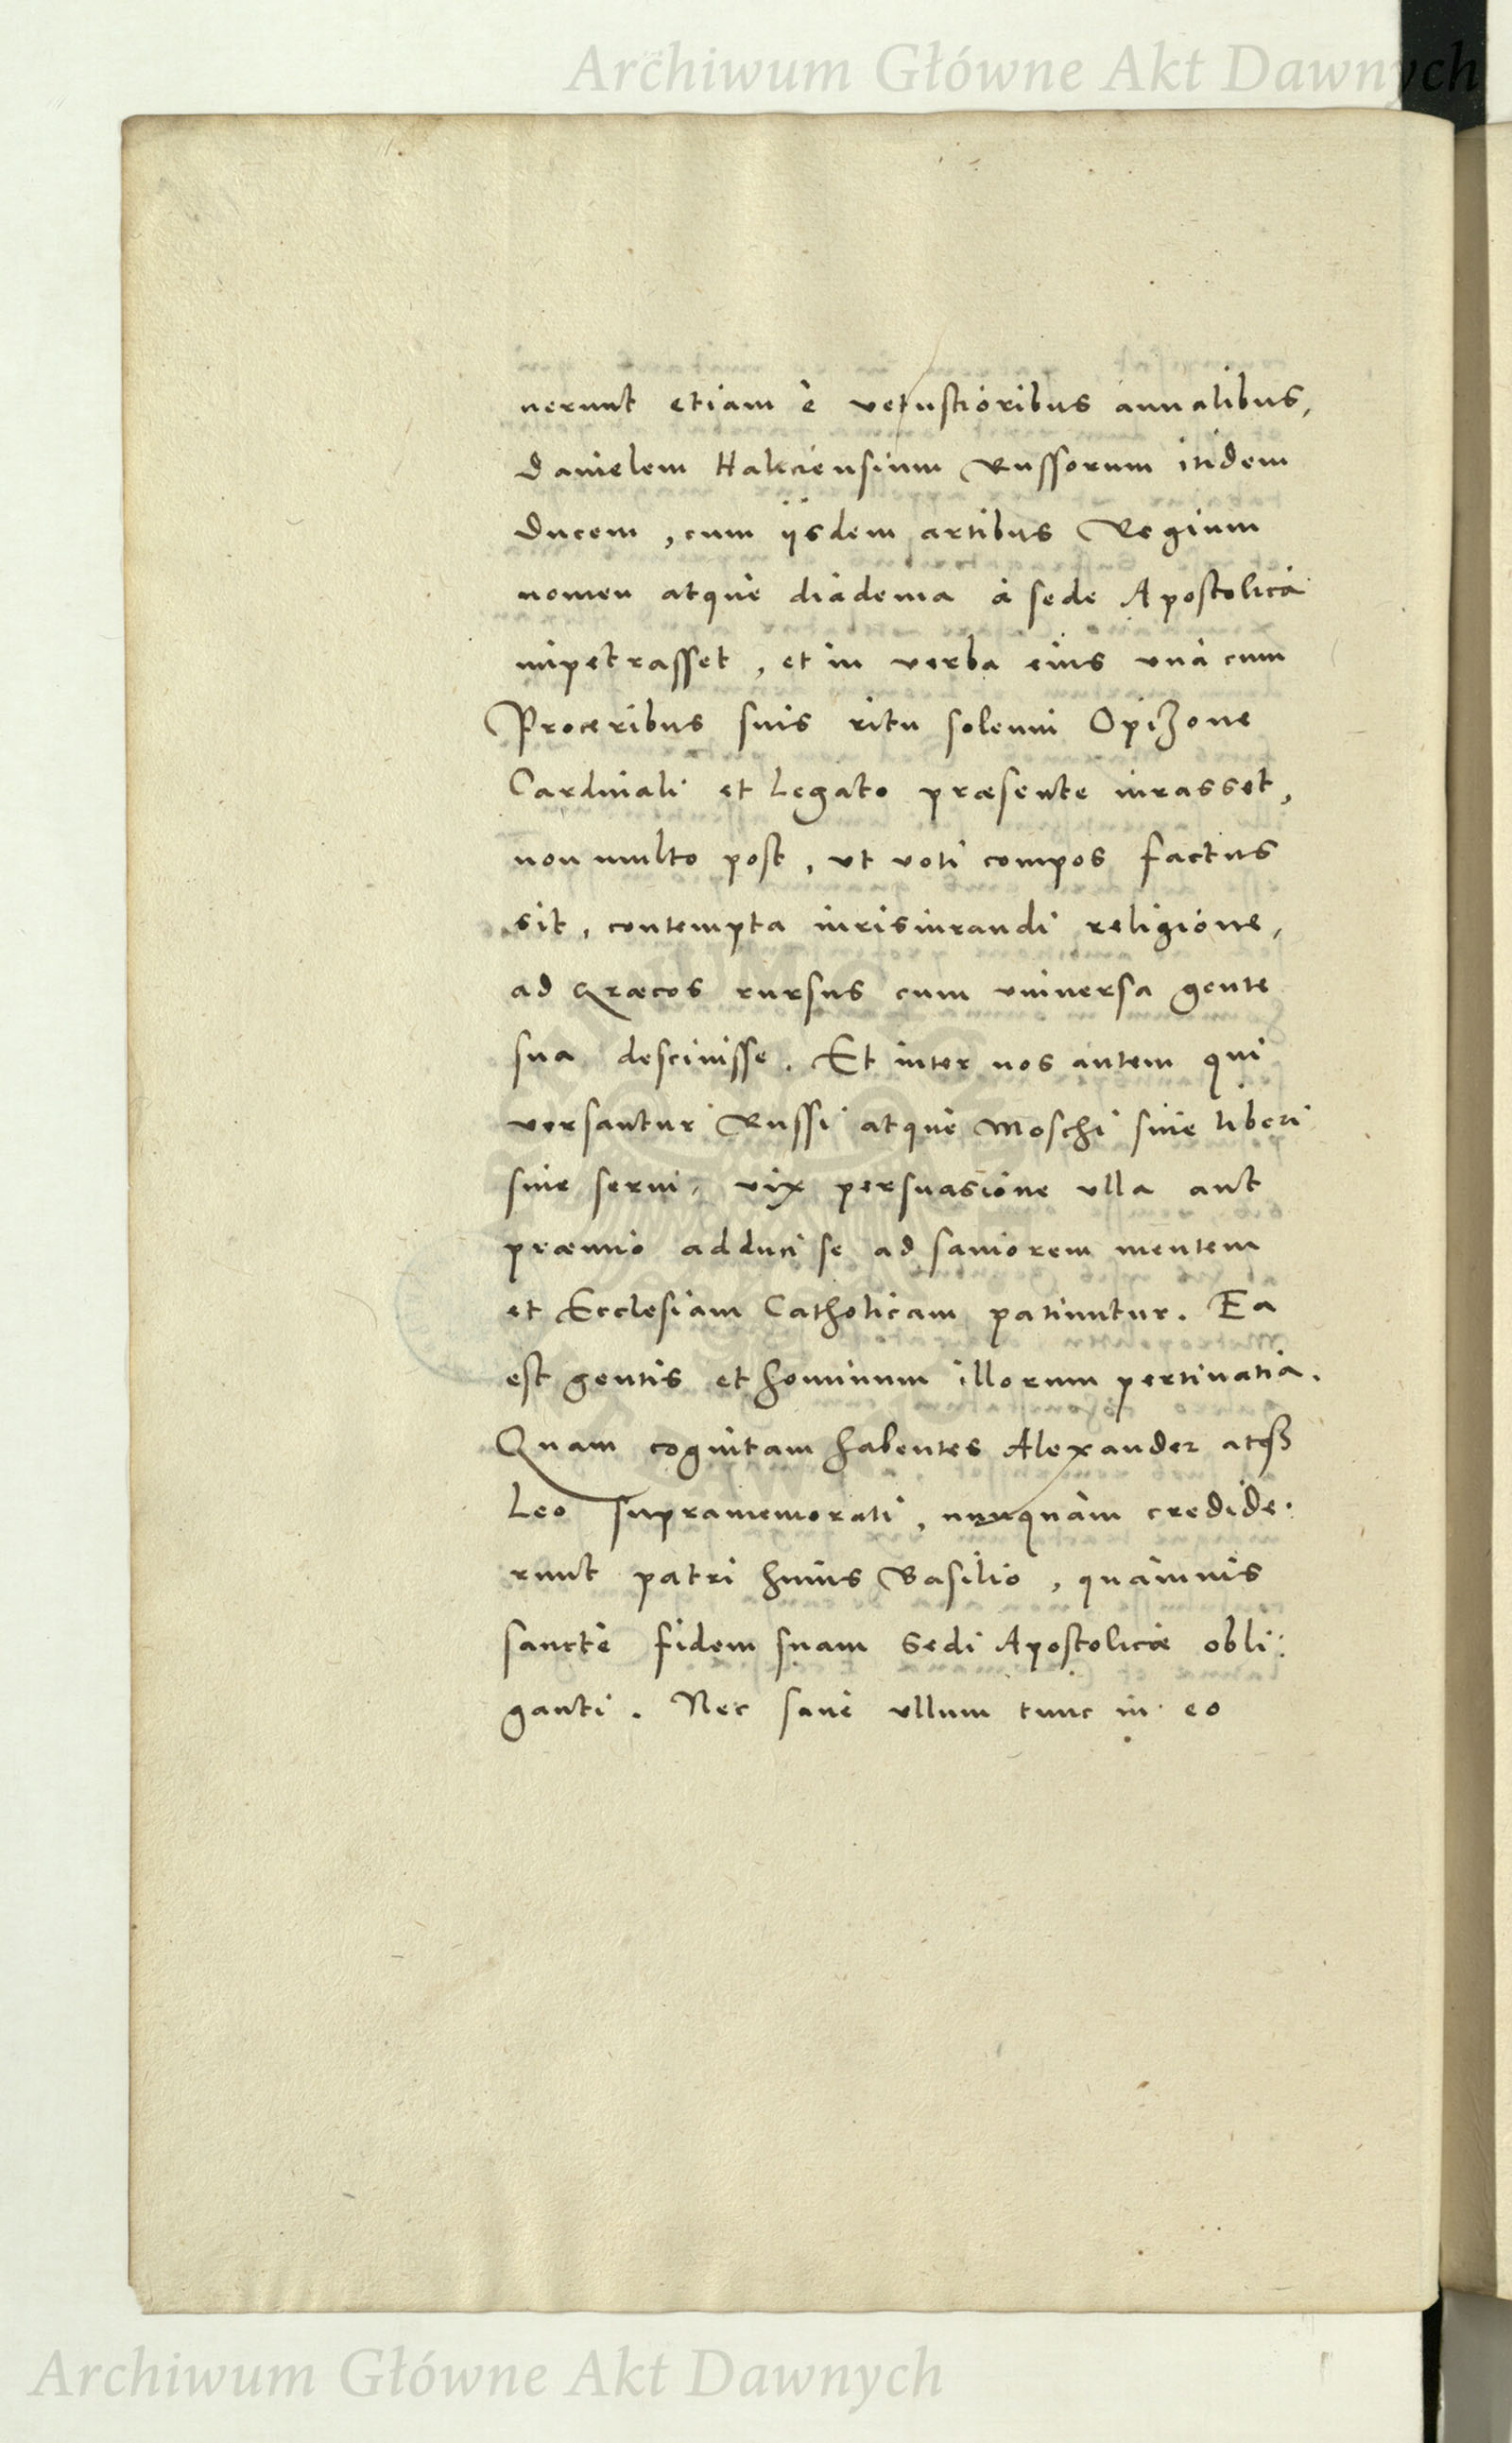 Archiwum Główne Akt Dawnych
nerunt etiam è vetustioribus annalibus,
Danielem Haliciensium Russorum itidem
Ducem, cum iisdem artibus Regium
nomen atque diadema à sede Apostolica
impetrasset, et in verba eius unà cum
Proceribus suis ritu solenni Opizone
Cardinali et Legato præsente iurasset,
non multo post, ut voti compos factus
sit, contempta iurisiurandi religione,
ad Græcos rursus cum universa gente
sua descivisse. Et inter nos autem qui
versantur Russi atque Moschi sive liberi
sive servi, vix persuasione ulla aut
præmio adduci se ad saniorem mentem
et Ecclesiam Catholicam patiuntur. Ea
est gentis et hominum illorum pertinatia.
Quam cognitam habentes Alexander atqꝫ
Leo supramemorati, nunquam credide-
runt patri huius Basilio, quamvis
sanctè fidem suam Sedi Apostolicæ obli-
ganti. Nec sanè ullum tunc in eo
Archiwum Główne Akt Dawnych